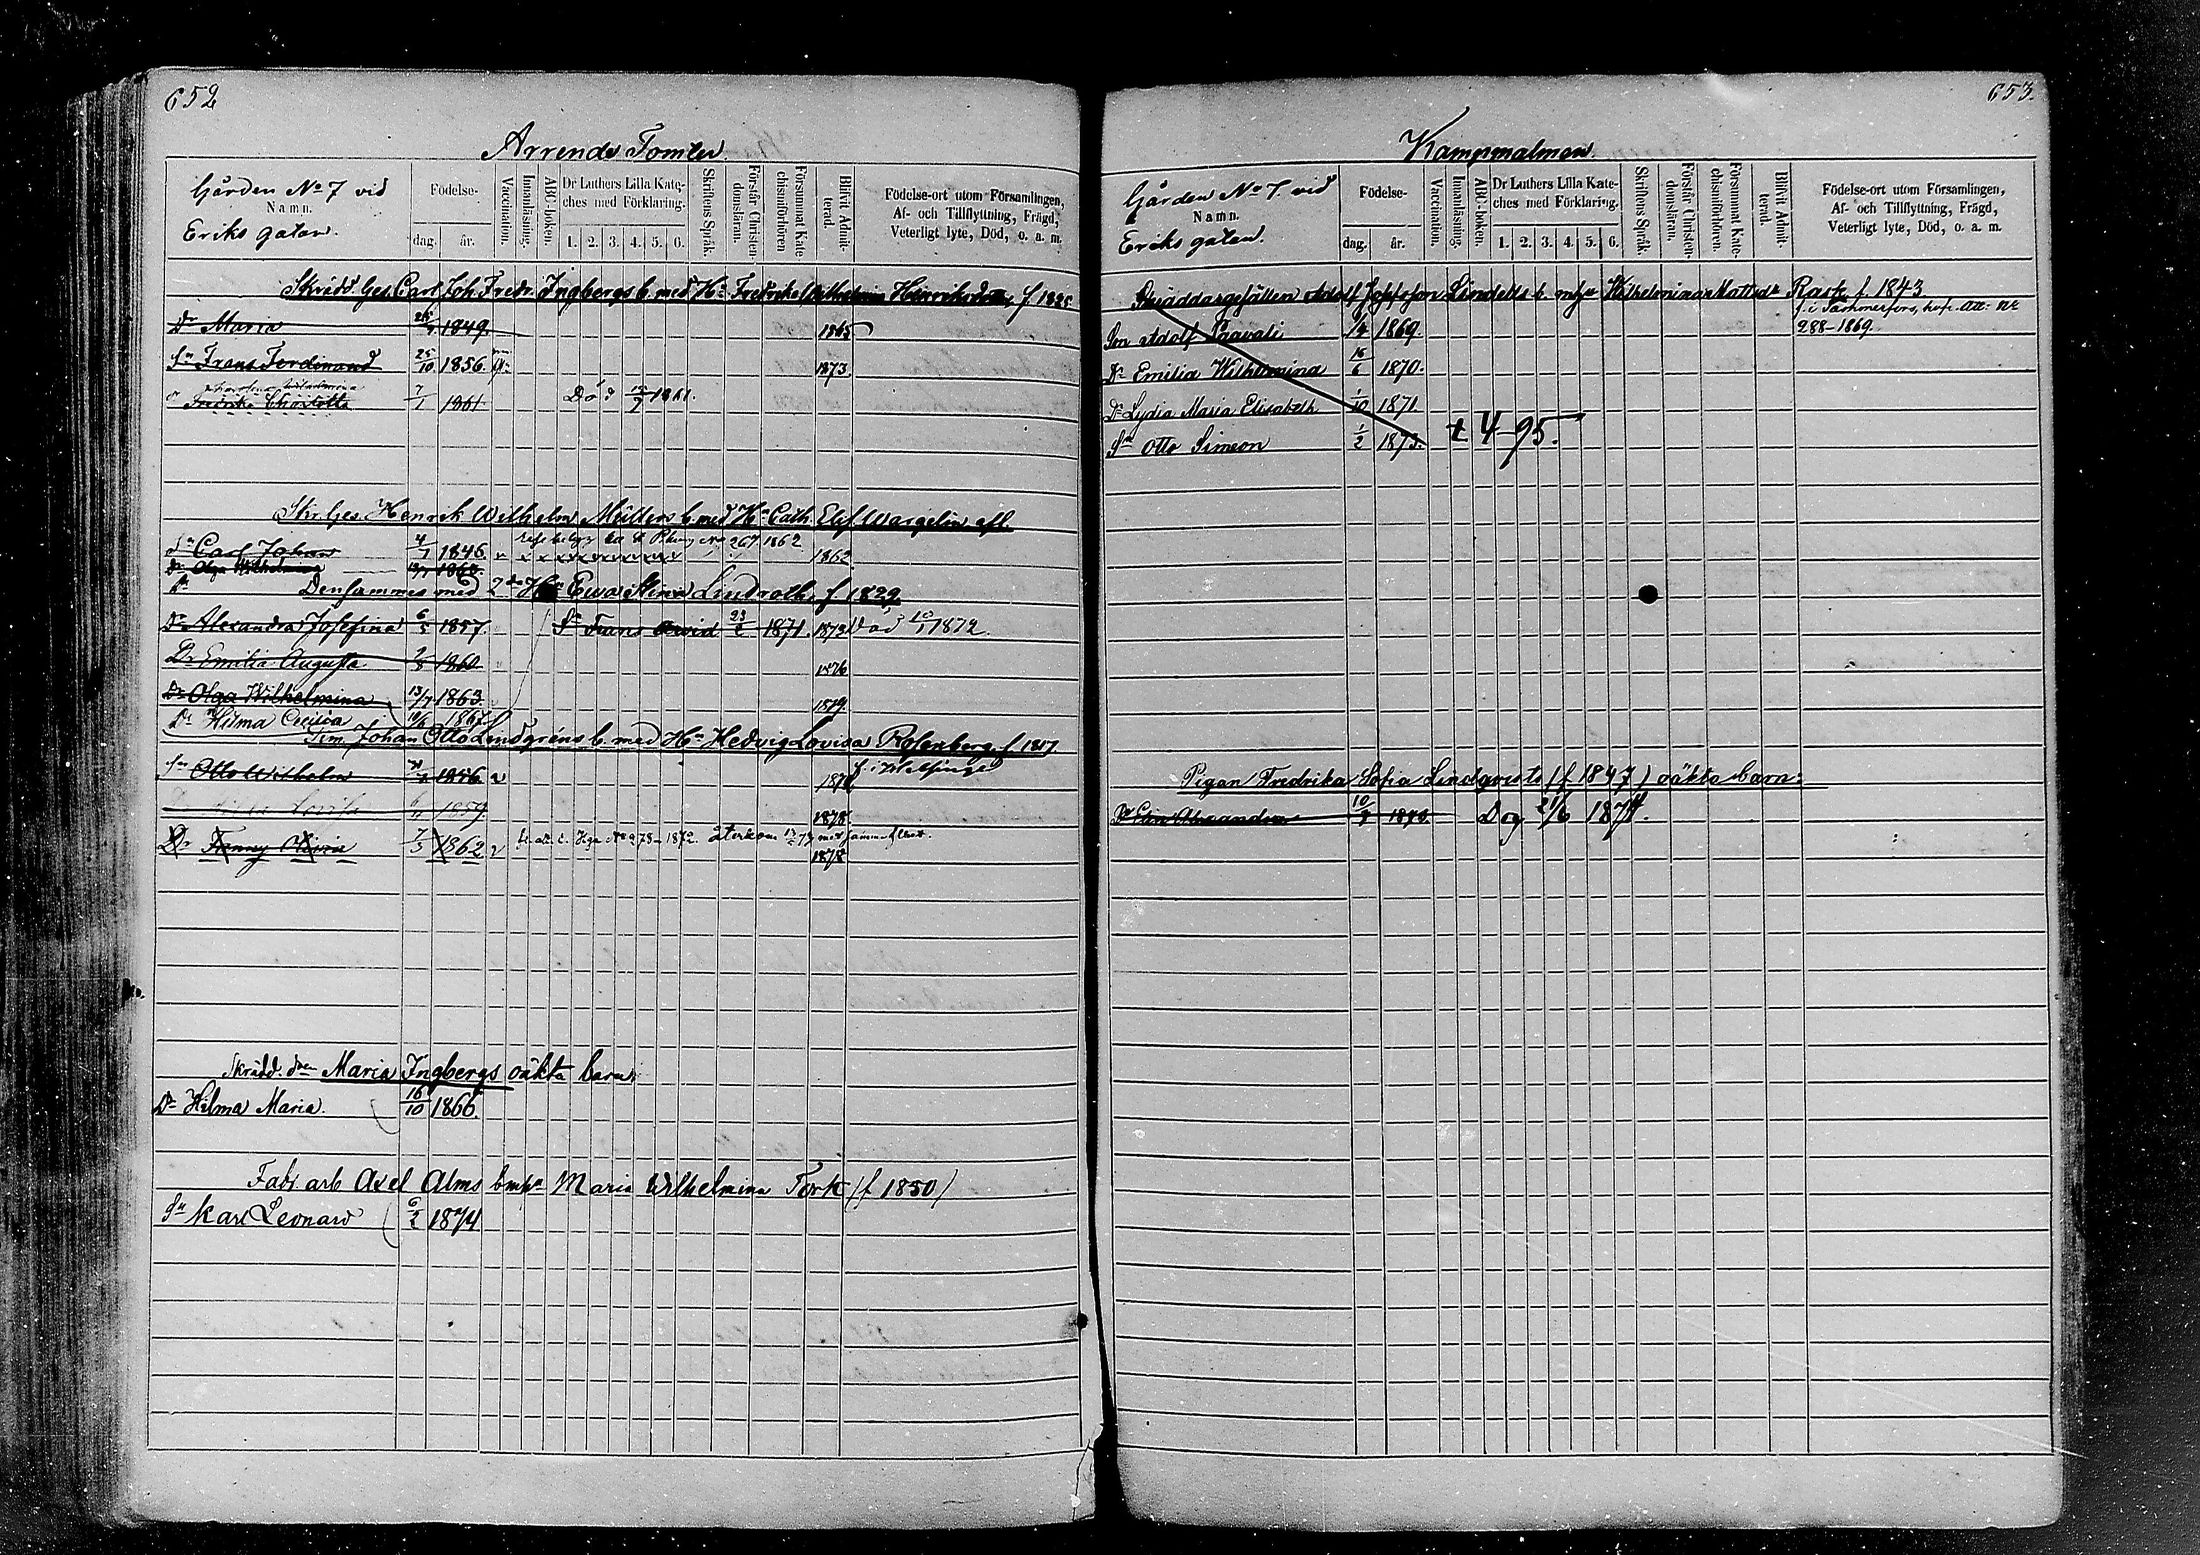 652
Arrende Tomter
Gården No 7 vid
Namn.
Eriks gatan.
Födelse-
dag. år.
Vaccination.
Innanläsning.
ABC-boken.
Dr Luthers Lilla Kate-
ches med Förklaring.
1. 2. 3. 4. 5. 6.
Skriftens Språk.
Förstår Christen-
domsläran.
Försummat Kate
chismiförhören
Blifvit Admit-
terad.
Födelse-ort utom Församlingen,
Af- och Tillflyttning, Frägd,
Veterligt lyte, Död, o. a. m.
Skrädd Ges. Carl Joh. Fredr. Ingbergs b. med Hu Fredrika Wilhelmina Henriksdotter f. 1825
Dr Maria 1849. 1865
Sn Frans Ferdinand 25/10 1856. 1873
Carolina Wilhelmina
Fredrika Charlotta 7/1 1861 Död 1861.
Skr. Ges. Henrik Wilhelm Müllers b. med Hu Cath. Elis. Wargelin afl.
Sn Carl Johan 4/1 1846. No 267 1862 1862
Dr Olga Wilhelmina 13/7 1863.
Densammes med 2dra Hu Ewa Stina Lindroth, f 1829
Dr Alexandra Josefina 6/5 1857. Sn Frans Arvid 23/2 1871. 1873 Död 1872.
Dr Emilia Augusta 2/8 1860 1876
Dr Olga Wilhelmina 13/7 1863. 1879.
Dr Hilma Cecilia 1867
Tim. Johan Otto Lindgrens b. med Hu Hedvig Lovisa Rosenberg f 1817
Sn Otto Wilhelm 1856 v 1874 f. i Helsinge
Lovisa 6/11 1859. 1878
Dr Fanny Olivia 7/5 1862 v 1872. återkom med samma attest.
1878
Skrädd. dren Maria Ingbergs oäkta barn
Dr Hilma Maria. 16/10 1866.
Fabr. arb Axel Alms b m hu Maria Wilhelmina Tork (f 1850)
Sn Karl Leonard 6/2 1874
653.
Kampmalmen.
Gården No 7. vid
Namn.
Eriks gatan.
Födelse-
dag. år.
Vaccination.
Innanläsning.
ABC-boken.
Dr Luthers Lilla Kate-
ches med Förklaring.
1. 2. 3. 4. 5. 6.
Skriftens Språk.
Förstår Christen-
domsläran.
Försummat Kate-
chismiförhören.
Blifvit Admit-
terad.
Födelse-ort utom Församlingen,
Af- och Tillflyttning, Frägd,
Veterligt lyte, Död, o. a. m.
Skräddaregesällen Adolf Josefsson Lindells b. m hu Wilhelmina Mattsdr Rask f. 1843
Son Adolf Paavali 1869. f. i Tammerfors, att. No
288-1869.
Dr Emilia Wilhelmina 16/6 1870.
Dr Lydia Maria Elisabeth 1/10 1871.
Sn Otto Simeon 1/2 1873. t 4-95.
Pigan Fredrika Sofia Lindqvists (f 1847) oäkta barn:
Dr Elin Alexandra Dog 21/6 1874.